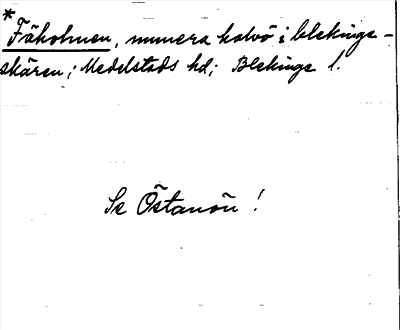 *Fäholmen, numera halvö i blekinge-
skären; Medelstads hd; Blekinge l.
Se Östanön!